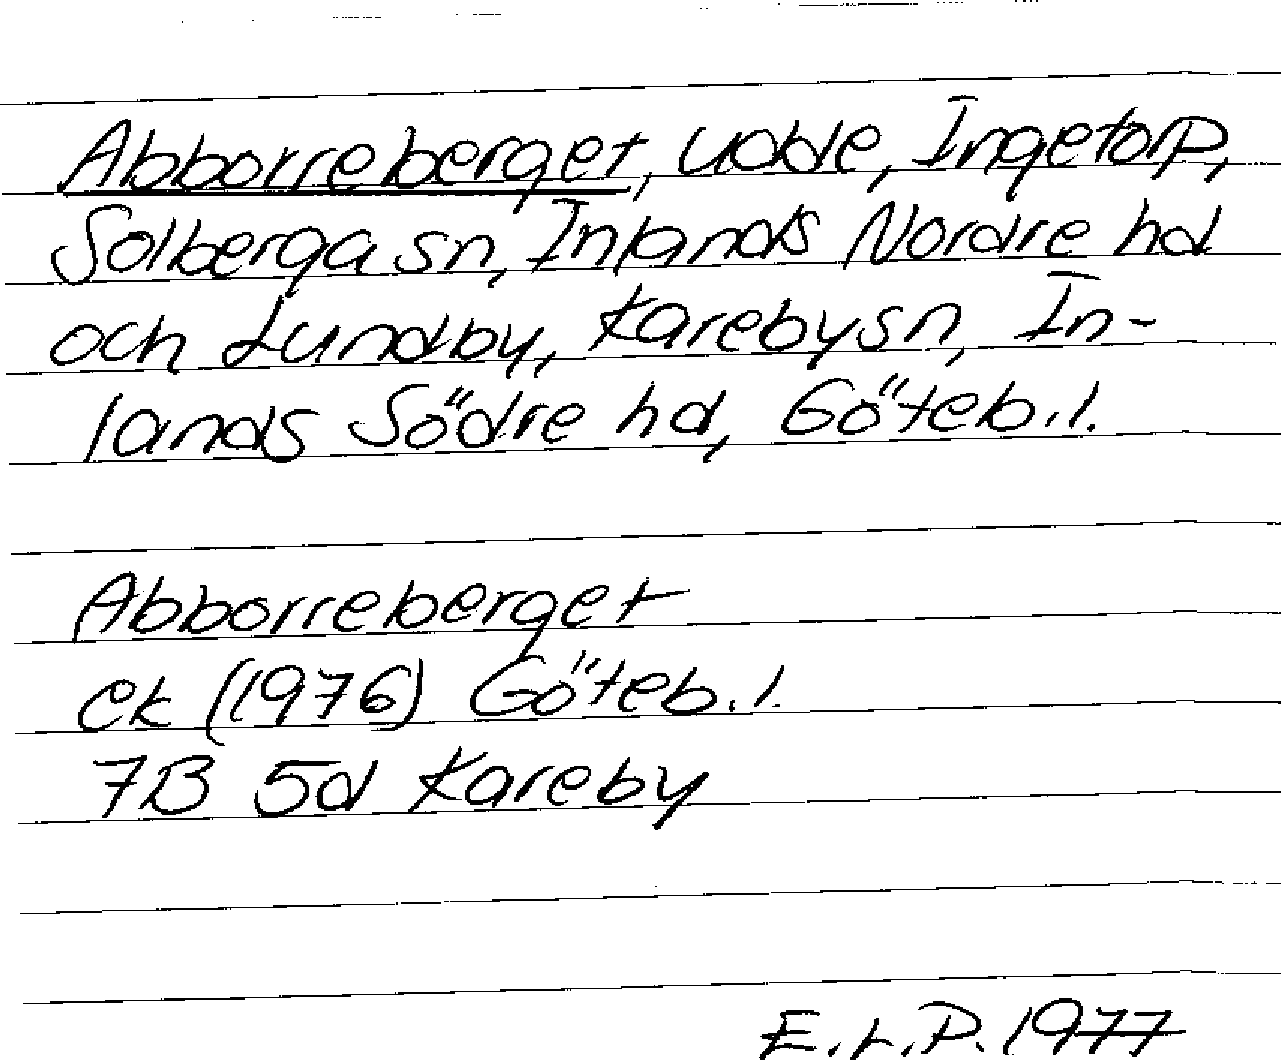 Abborreberget, udde, Ingetorp,
Solberga sn, Inlands Nordre hd
och Lundby, Kareby sn, In-
lands Södre hd, Göteb.l.
Abborreberget
ek (1976) Göteb.l.
7B 5d Kareby
E.L.P. 1977